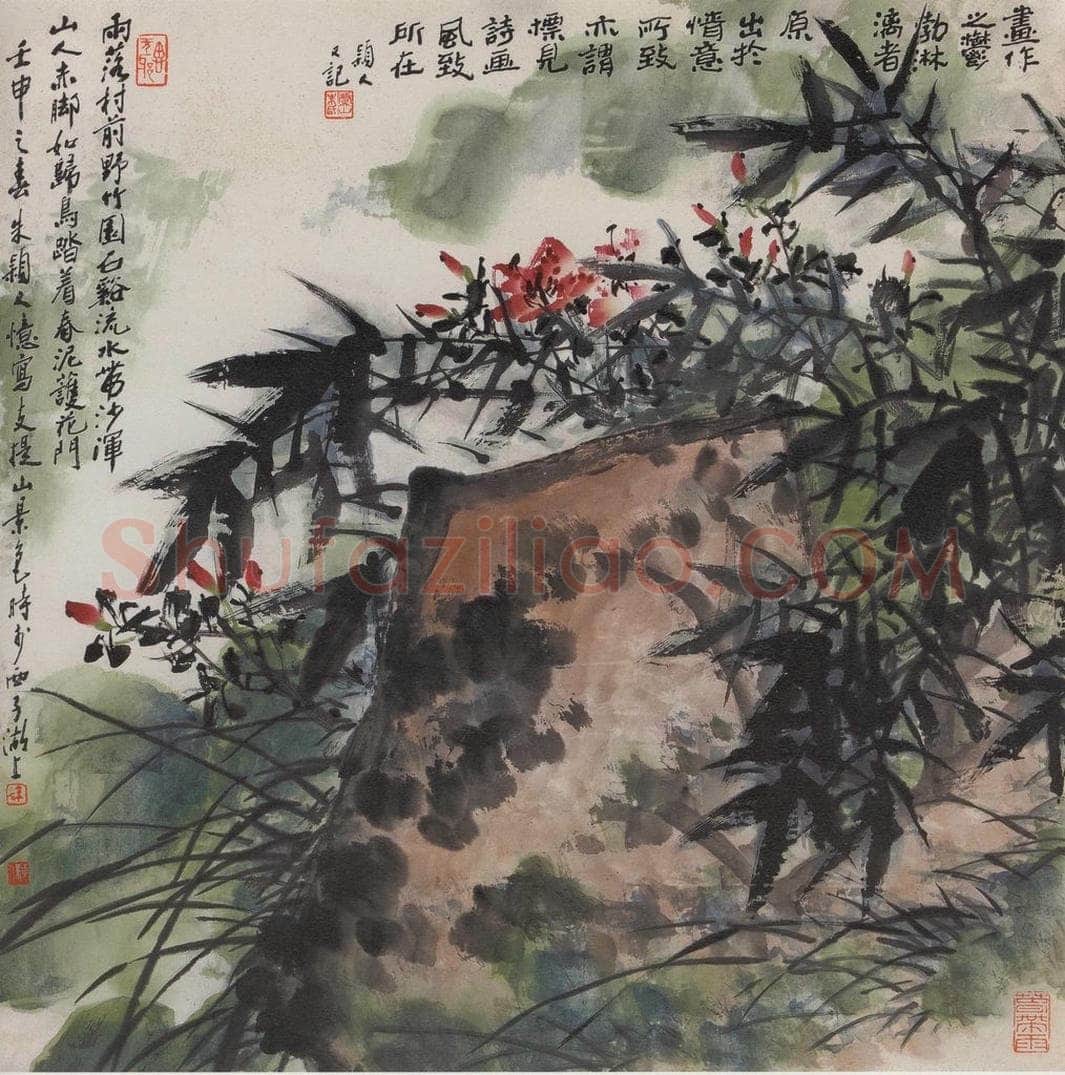 畫作
之鬱
勃淋
漓者
原
出於
情意
所致
亦謂
標見
詩画
風致
所在
穎人
又記
雨落村前野竹園石谿流水帶沙渾
山人赤脚如歸鳥踏着春泥護花門
壬申之春朱穎人憶寫支提山景色時於西子湖上
Shufaziliao.COM